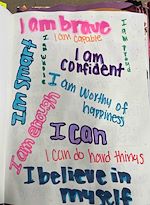 I am brave
I am capable
I am smart
I am proud
I am
confident
I am worthy of
happiness
I am enough
I can
I can do hard things
I believe in
myself